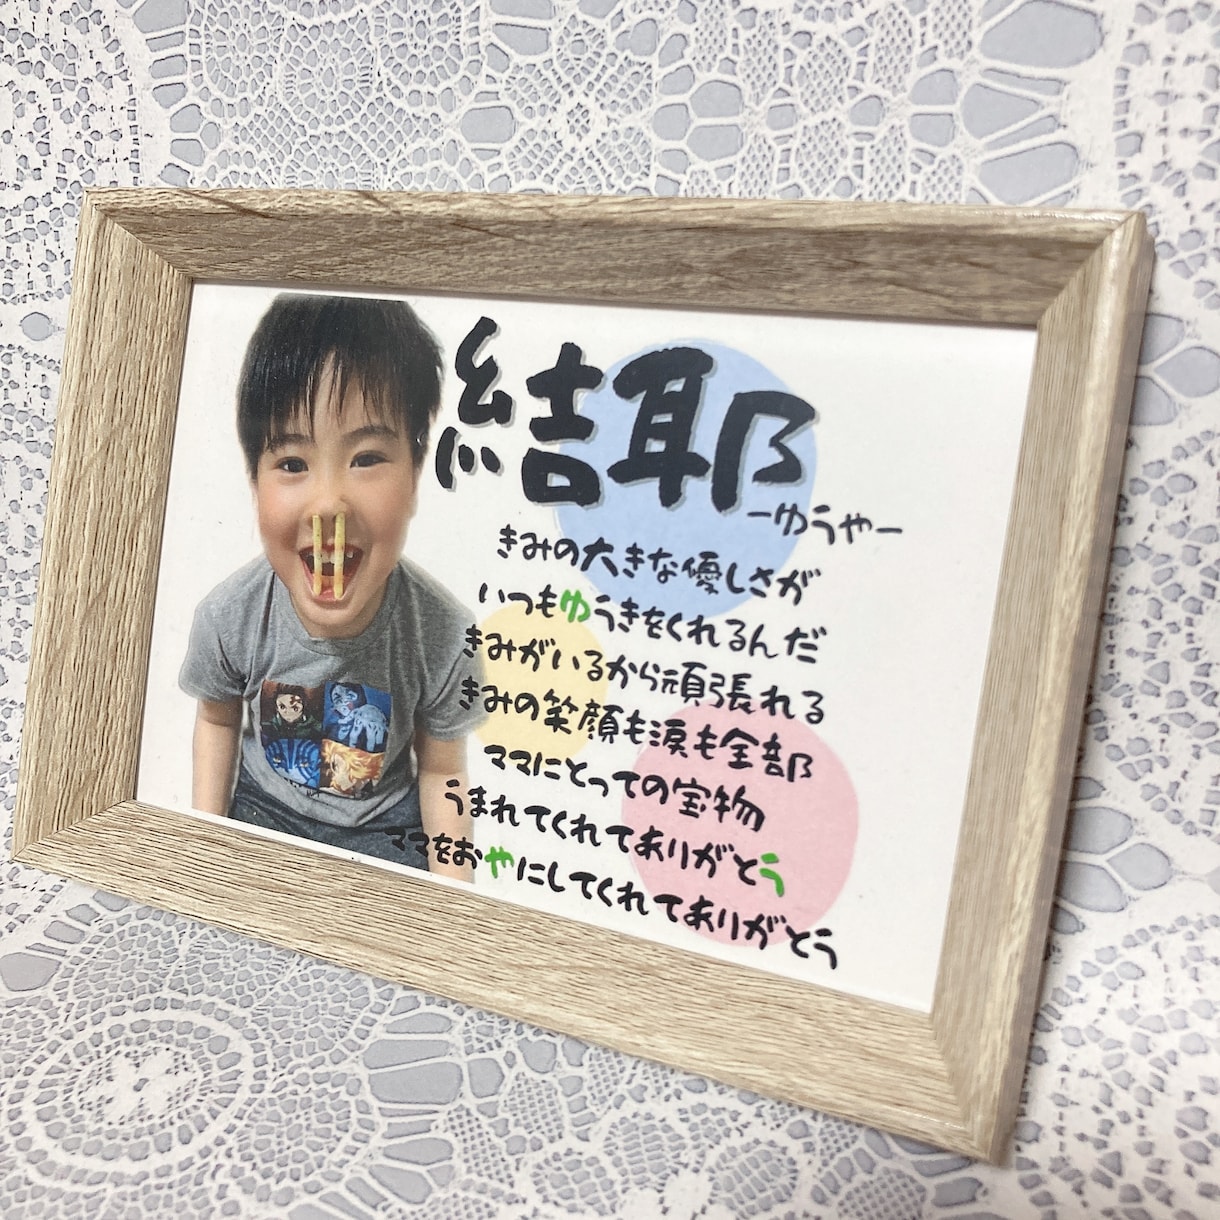 結耶
ーゆうやー
きみの大きな優しさが
いつもゆうきをくれるんだ
きみがいるから頑張れる
きみの笑顔も涙も全部
ママにとっての宝物
うまれてくれてありがとう
ママをおやにしてくれてありがとう